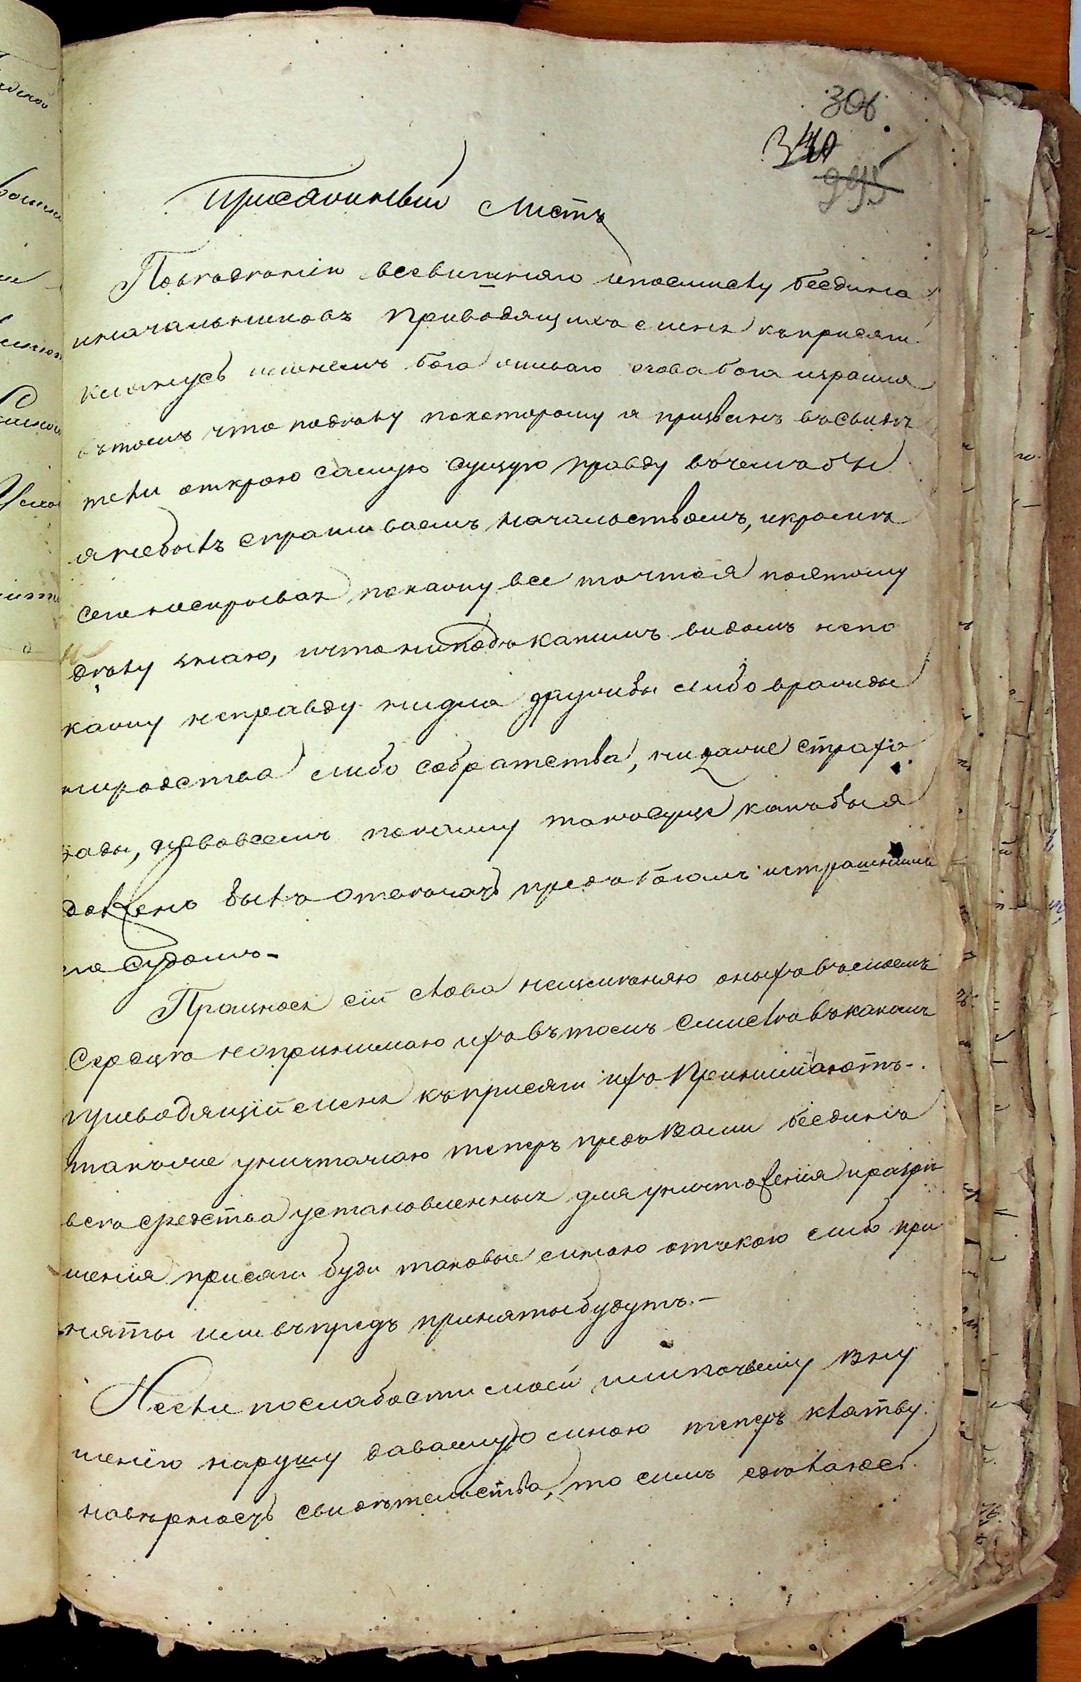 306
340
295
Присяжный Листъ
По веленію всевышняго и по смыслу беёдина
и начальниковъ приводящихъ меня къ присяги
клянусь именемъ бога живаго егова бога израиля
въ томъ что по делу по которому я призванъ въ свиде
тели открою самую сущую правду въ чемъ бы
я небылъ спрашиваемъ начальствомъ, и кроме
сего нескрывая покажу все то что я по этому
делу знаю, и что ни подъ какимъ видомъ не по
кажу неправду ни для дружбы либо вражды
ни родства либо собратства, ниже страха
ради, но вовсемъ покажу такъ сущее какъ бы я
долженъ былъ отвечать предъ богомъ и страшнымъ
его судомъ.
Произнося сіи слова неизменяю оныхъ въ моемъ
Сердце но принимаю ихъ въ томъ смысле въ какомъ
приводящій меня къ присяги ихъ принимаютъ.
также уничтожаю теперъ предъ вами беединъ
все средства установленныя для уничтоженія и разре
шенія присяги буди таковые мною отъкого либо при
няты или въпредъ приняты будутъ.
Если по слабости моей, или по чьему вну
шенію нарушу даваемую мною теперъ клятву
на верность свидетельства, то симъ сделаюсь